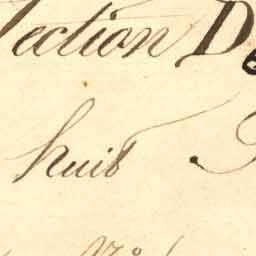 Section D
huit